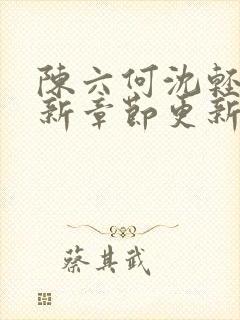 陳六何沈輕
新章節更新
蔡其武